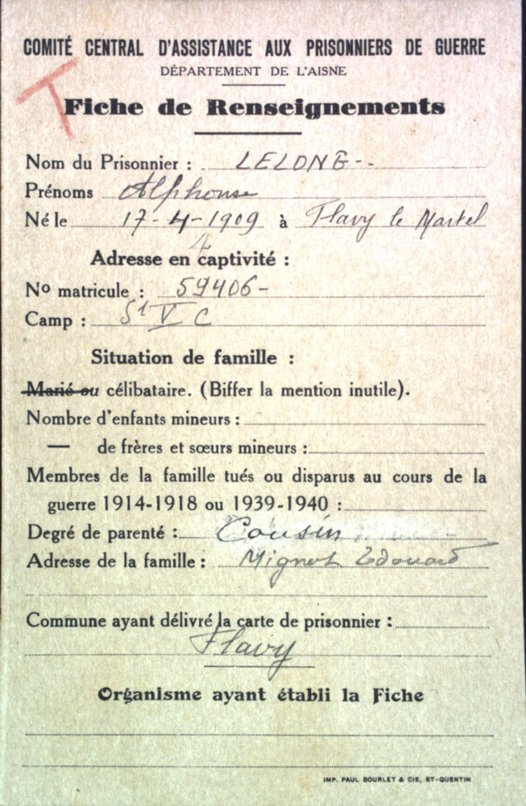 COMITÉ CENTRAL D'ASSISTANCE AUX PRISONNIERS DE GUERRE
DÉPARTEMENT DE L'AISNE
T
Fiche de Renseignements
Nom du Prisonnier : LELONG--
Prénoms Alphonse
Né le 17-4-1909 à Flavy le Martel
4
Adresse en captivité :
No matricule : 59406-
Camp : St V C
Situation de famille :
Marié ou célibataire. (Biffer la mention inutile).
Nombre d'enfants mineurs :
— de frères et sœurs mineurs :
Membres de la famille tués ou disparus au cours de la
guerre 1914-1918 ou 1939-1940 :
Degré de parenté : Cousin
Adresse de la famille : Mignot Edouard
Commune ayant délivré la carte de prisonnier :
Flavy
Organisme ayant établi la Fiche
IMP. PAUL BOURLET & CIE, ST-QUENTIN